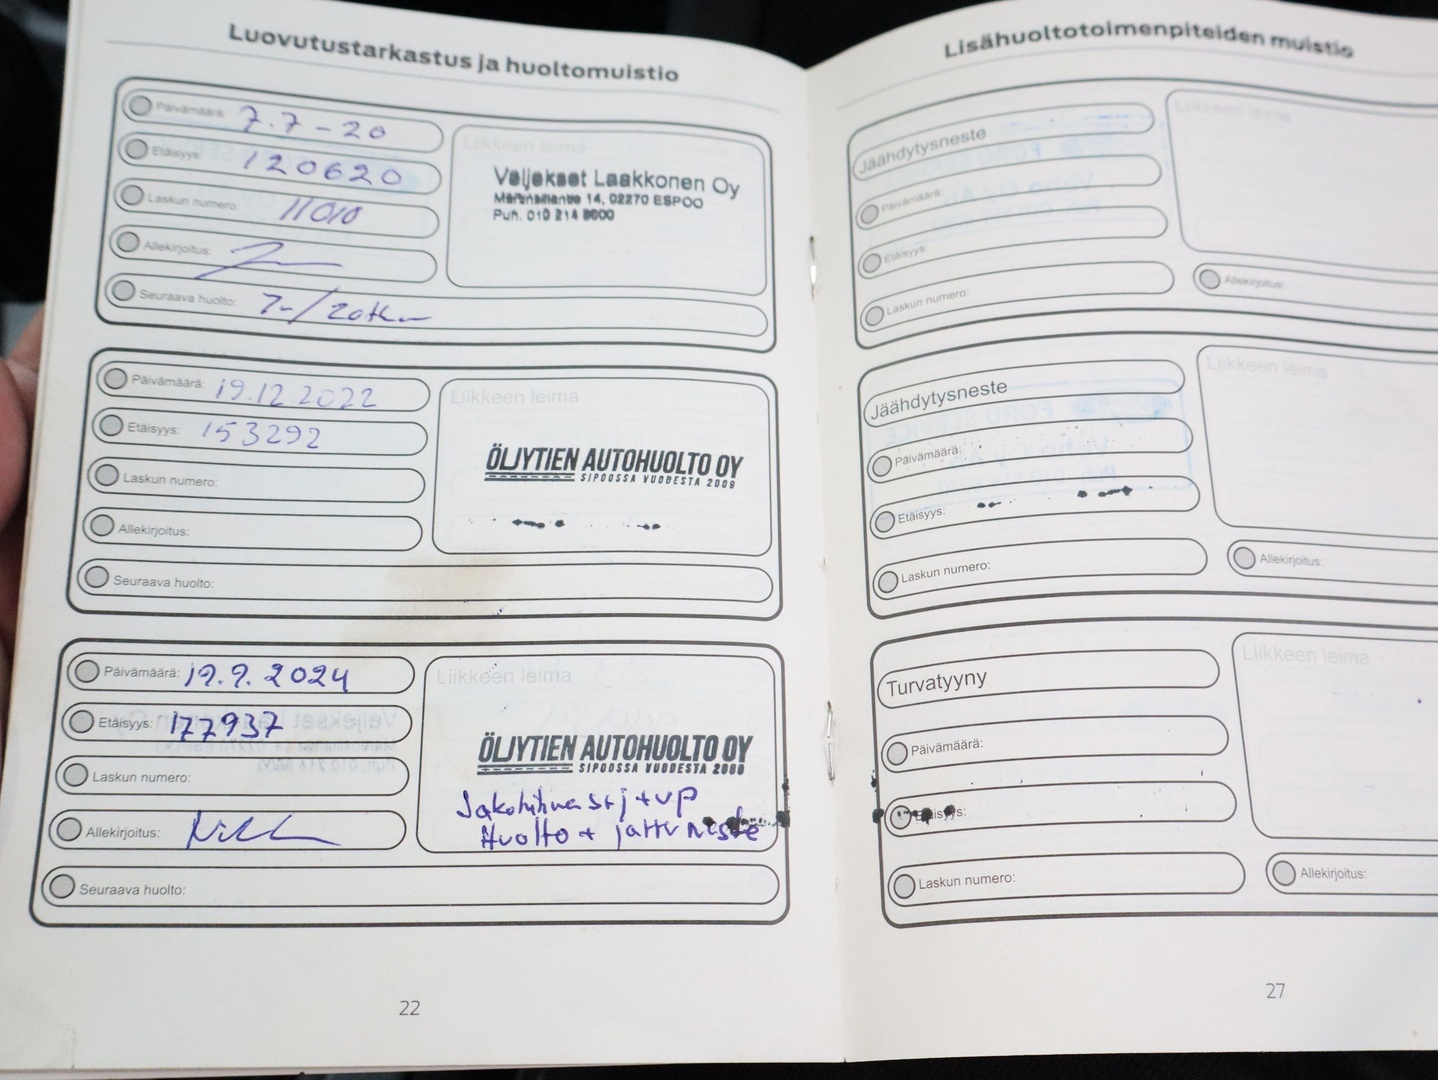 Luovutustarkastus ja huoltomuistio
Päivämäärä: 7.7-20
Etäisyys: 120620
Laskun numero: 11010
Allekirjoitus:
Seuraava huolto:
Liikkeen leima
Veljekset Laakkonen Oy
Martinsillantie 14, 02270 ESPOO
Puh. 010 214 8600
Päivämäärä: 19.12.2022
Etäisyys: 153292
Laskun numero:
Allekirjoitus:
Seuraava huolto:
Liikkeen leima
ÖLJYTIEN AUTOHUOLTO OY
SIPOOSSA VUODESTA 2009
Päivämäärä: 19.9.2024
Etäisyys: 177937
Laskun numero:
Allekirjoitus:
Seuraava huolto:
Liikkeen leima
ÖLJYTIEN AUTOHUOLTO OY
SIPOOSSA VUODESTA 2009
Jakohihna srj + vp
Huolto + jarruneste
22
Lisähuoltotoimenpiteiden muistio
Jäähdytysneste
Päivämäärä:
Etäisyys:
Laskun numero:
Liikkeen leima
Allekirjoitus:
Jäähdytysneste
Päivämäärä:
Etäisyys:
Laskun numero:
Liikkeen leima
Allekirjoitus:
Turvatyyny
Päivämäärä:
Etäisyys:
Laskun numero:
Liikkeen leima
Allekirjoitus:
27